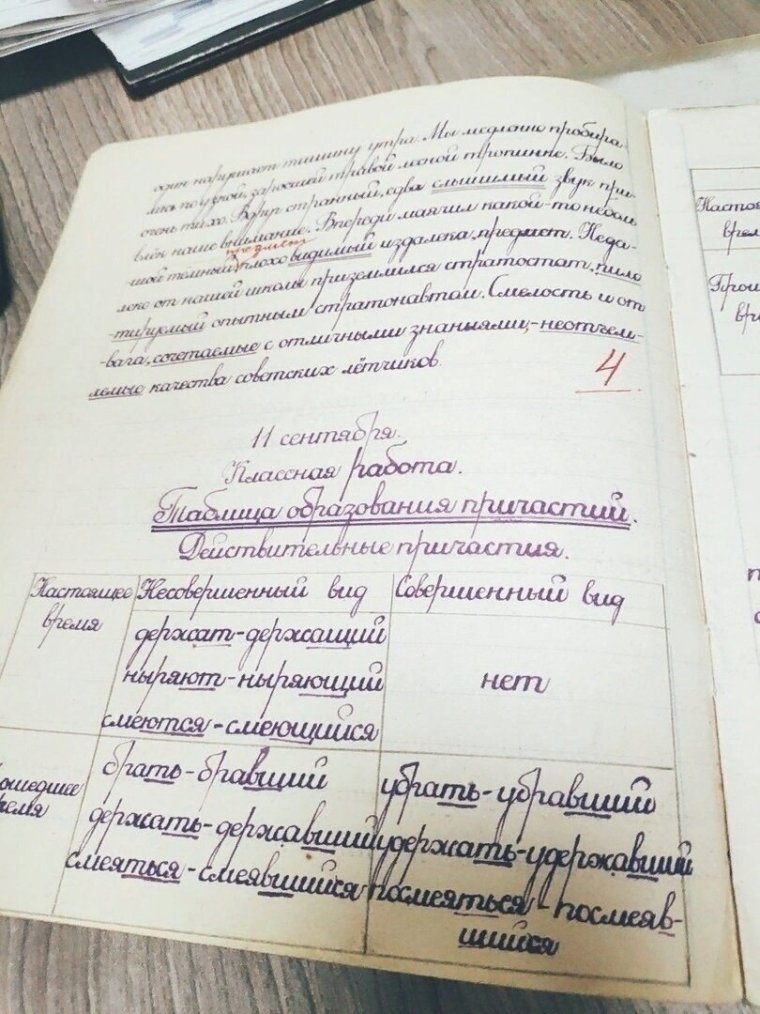 один нарушает тишину утра. Мы медленно пробира-
лись по узкой, заросшей травой лесной тропинке. Было
очень тихо. Вдруг странный, едва слышимый звук при-
влёк наше внимание. Впереди маячил какой-то неболь
предмет
шой тёмный, плохо видимый издалека, предмет. Неда-
леко от нашей школы приземлился стратостат, пило
-тируемый опытным стратонавтом. Смелость и от
-вага, сочетаемые с отличными знаньями, - неотъем-
лемые качества советских лётчиков.
4
11 сентября.
Классная работа.
Таблица образования причастий.
Действительные причастия.
Настоящее Несовершенный вид Совершенный вид
время
держат - держащий
ныряют - ныряющий нет
смеются - смеющийся
ошедшее брать - бравший убрать - убравший
ремя держать - державший удержать - удержавший
смеяться - смеявшийся посмеяться - посмеяв-
шийся
Настоя
врем
Прош
вре